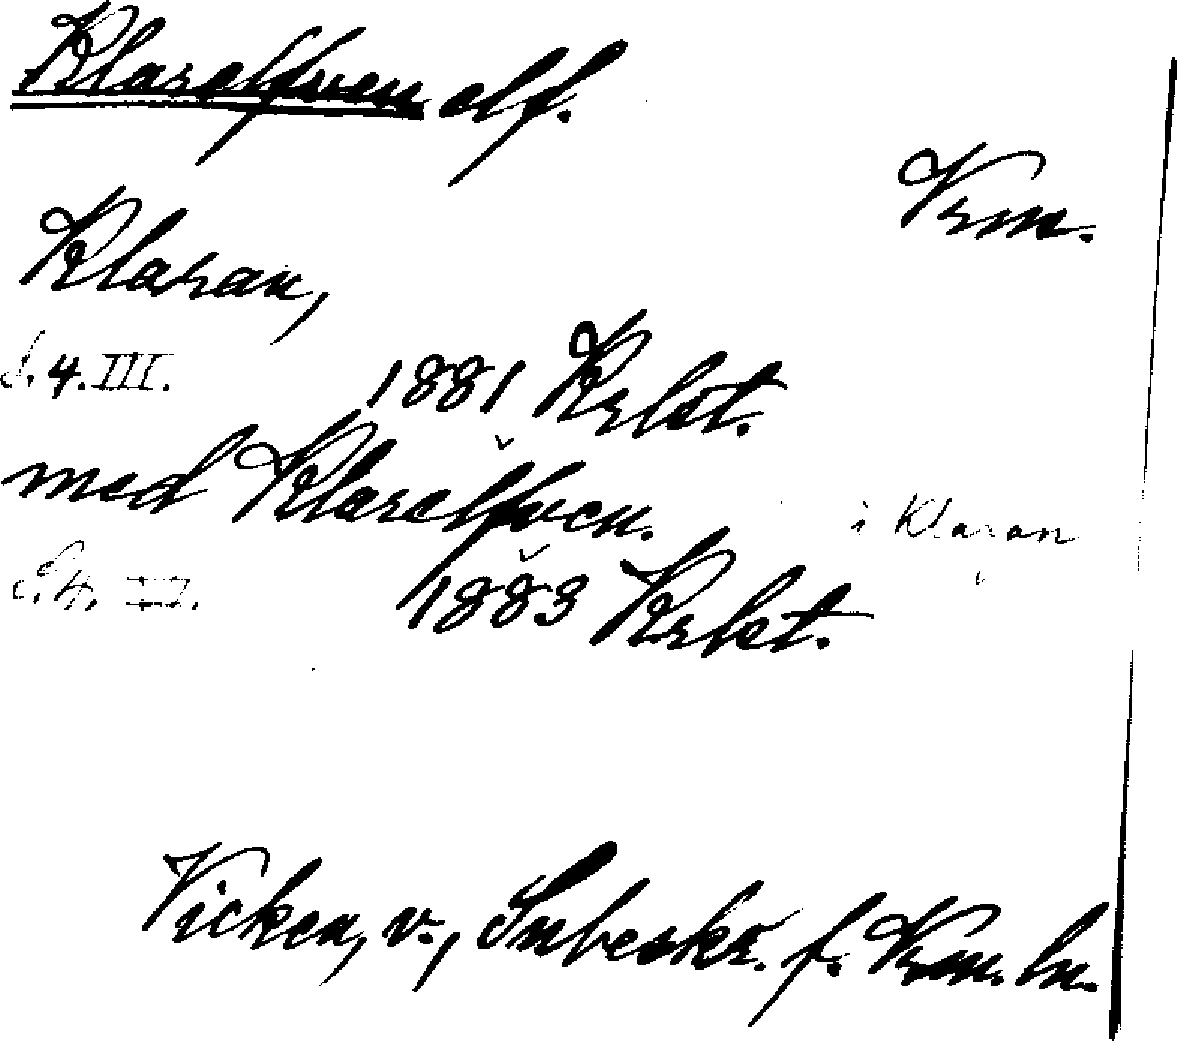 Klarelfven elf.
Vrm.
Klaran,
S. 4. III. 1881 Krlst.
med Klarelfven. i Klaran
S. 4. 1883 Krlst.
Vicken, v., Snbeskr. f. Vrm. ln.